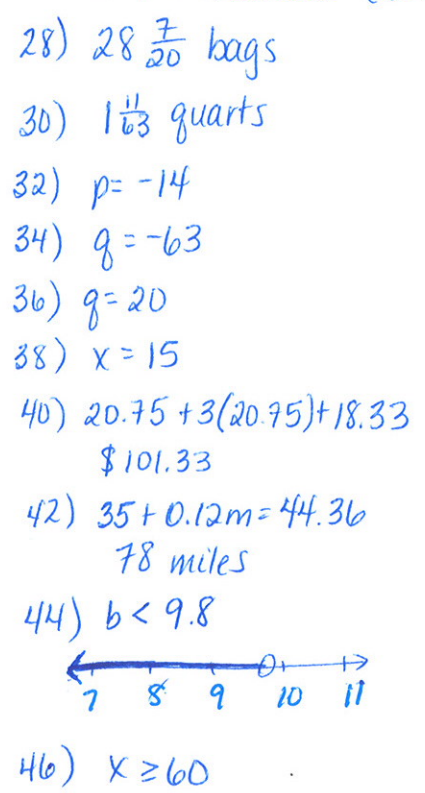 28) 28 7/20 bags
30) 1 11/63 quarts
32) p= -14
34) q = -63
36) q= 20
38) x = 15
40) 20.75 +3(20.75)+18.33
$101.33
42) 35+0.12m=44.36
78 miles
44) b < 9.8
7 8 9 10 11
46) x ≥60